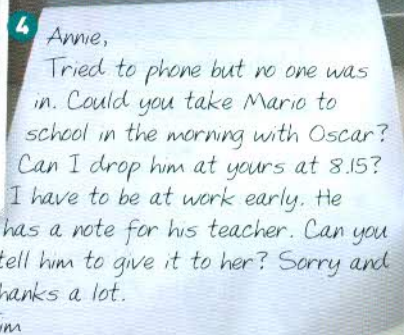 4
Annie,
Tried to phone but no one was
in. Could you take Mario to
school in the morning with Oscar?
Can I drop him at yours at 8.15?
I have to be at work early. He
has a note for his teacher. Can you
tell him to give it to her? Sorry and
hanks a lot.
im